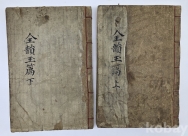 全韻玉篇 下
全韻玉篇 上